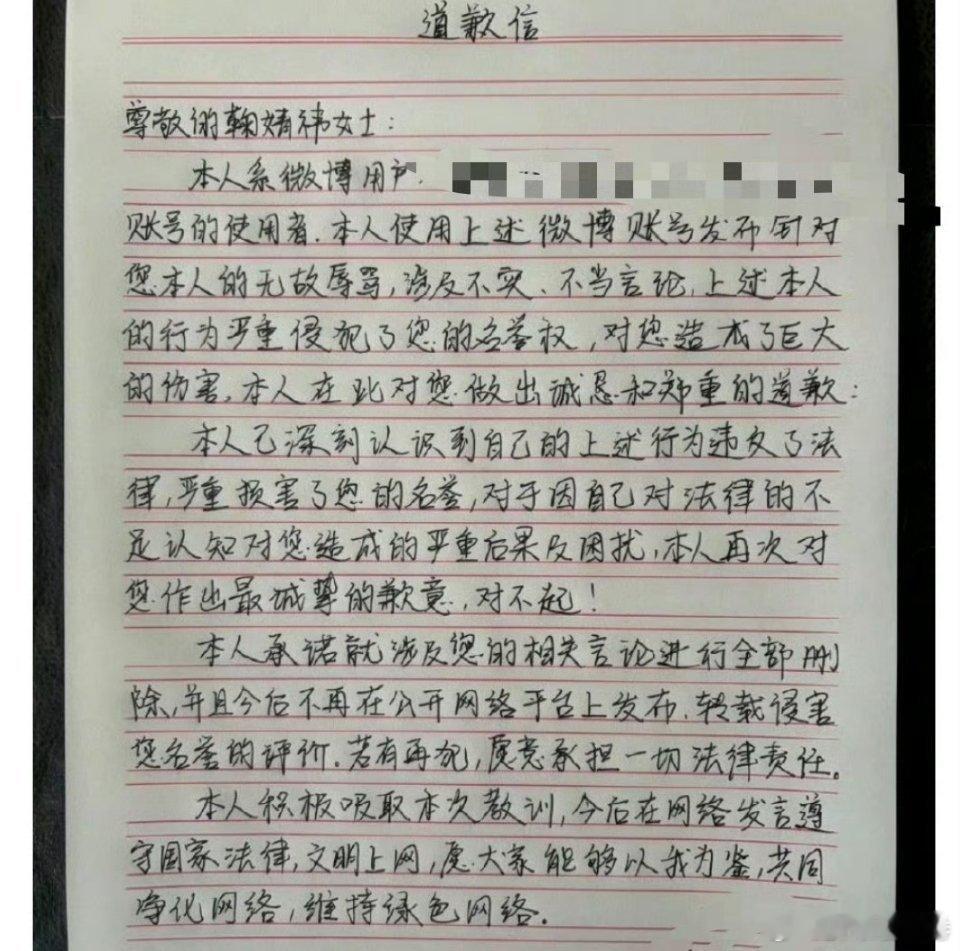 道歉信
尊敬的鞠婧祎女士：
本人系微博用户
账号的使用者.本人使用上述微博账号发布针对
您本人的无故辱骂,涉及不实、不当言论,上述本人
的行为严重侵犯了您的名誉权,对您造成了巨大
的伤害,本人在此对您做出诚恳和郑重的道歉:
本人已深刻认识到自己的上述行为违反了法
律,严重损害了您的名誉,对于因自己对法律的不
足认知对您造成的严重后果及困扰,本人再次对
您作出最诚挚的歉意,对不起!
本人承诺就涉及您的相关言论进行全部删
除,并且今后不再在公开网络平台上发布、转载侵害
您名誉的评价.若有再犯,愿意承担一切法律责任。
本人积极吸取本次教训,今后在网络发言遵
守国家法律,文明上网,愿大家能够以我为鉴,共同
净化网络,维持绿色网络.